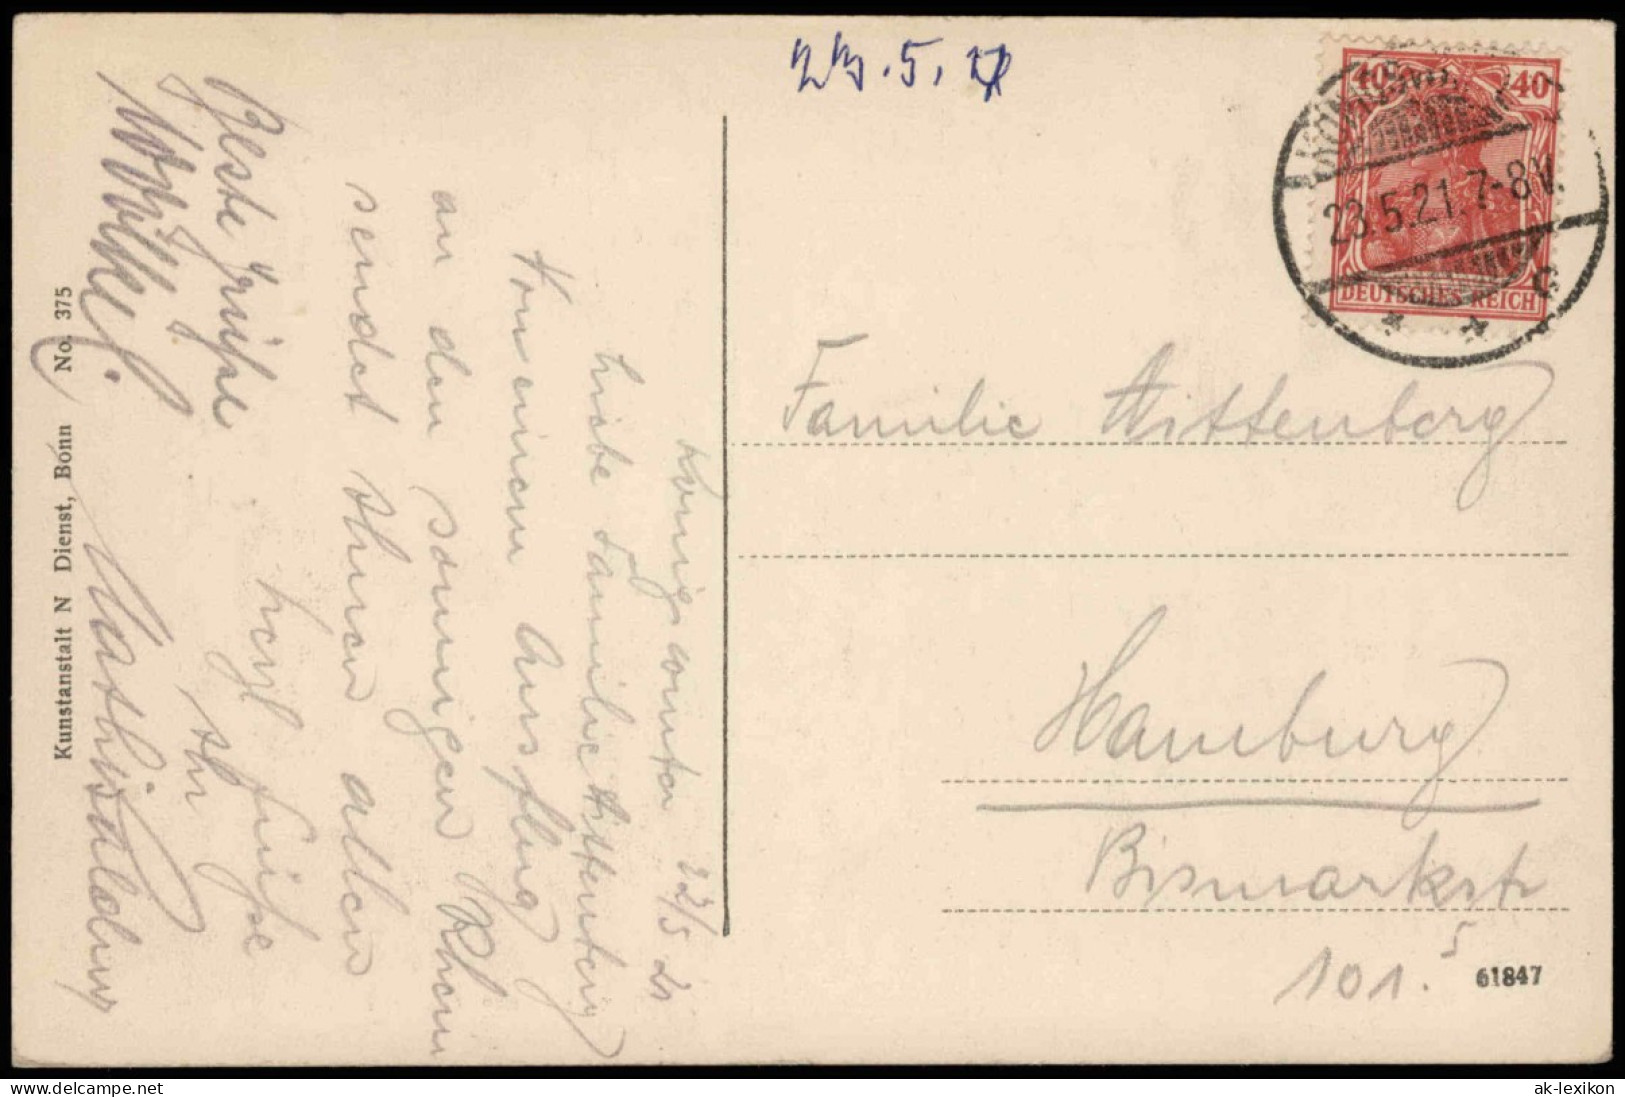 23.5.
40 40
KÖNIGSWINTER
23.5.21.7-8V.
DEUTSCHES REICH
* * c
Königswinter 22/5 21
Liebe Familie Wittenberg
Von einem Ausflug
an den sonnigen Rhein
sendet Ihnen allen
herzl Grüße
Ihr
Beste Grüße
Familie Wittenberg
Hamburg
Bismarkstr
101. 5
61847
Kunstanstalt N Dienst, Bonn No. 375
hippostcard.com
ak-lexikon